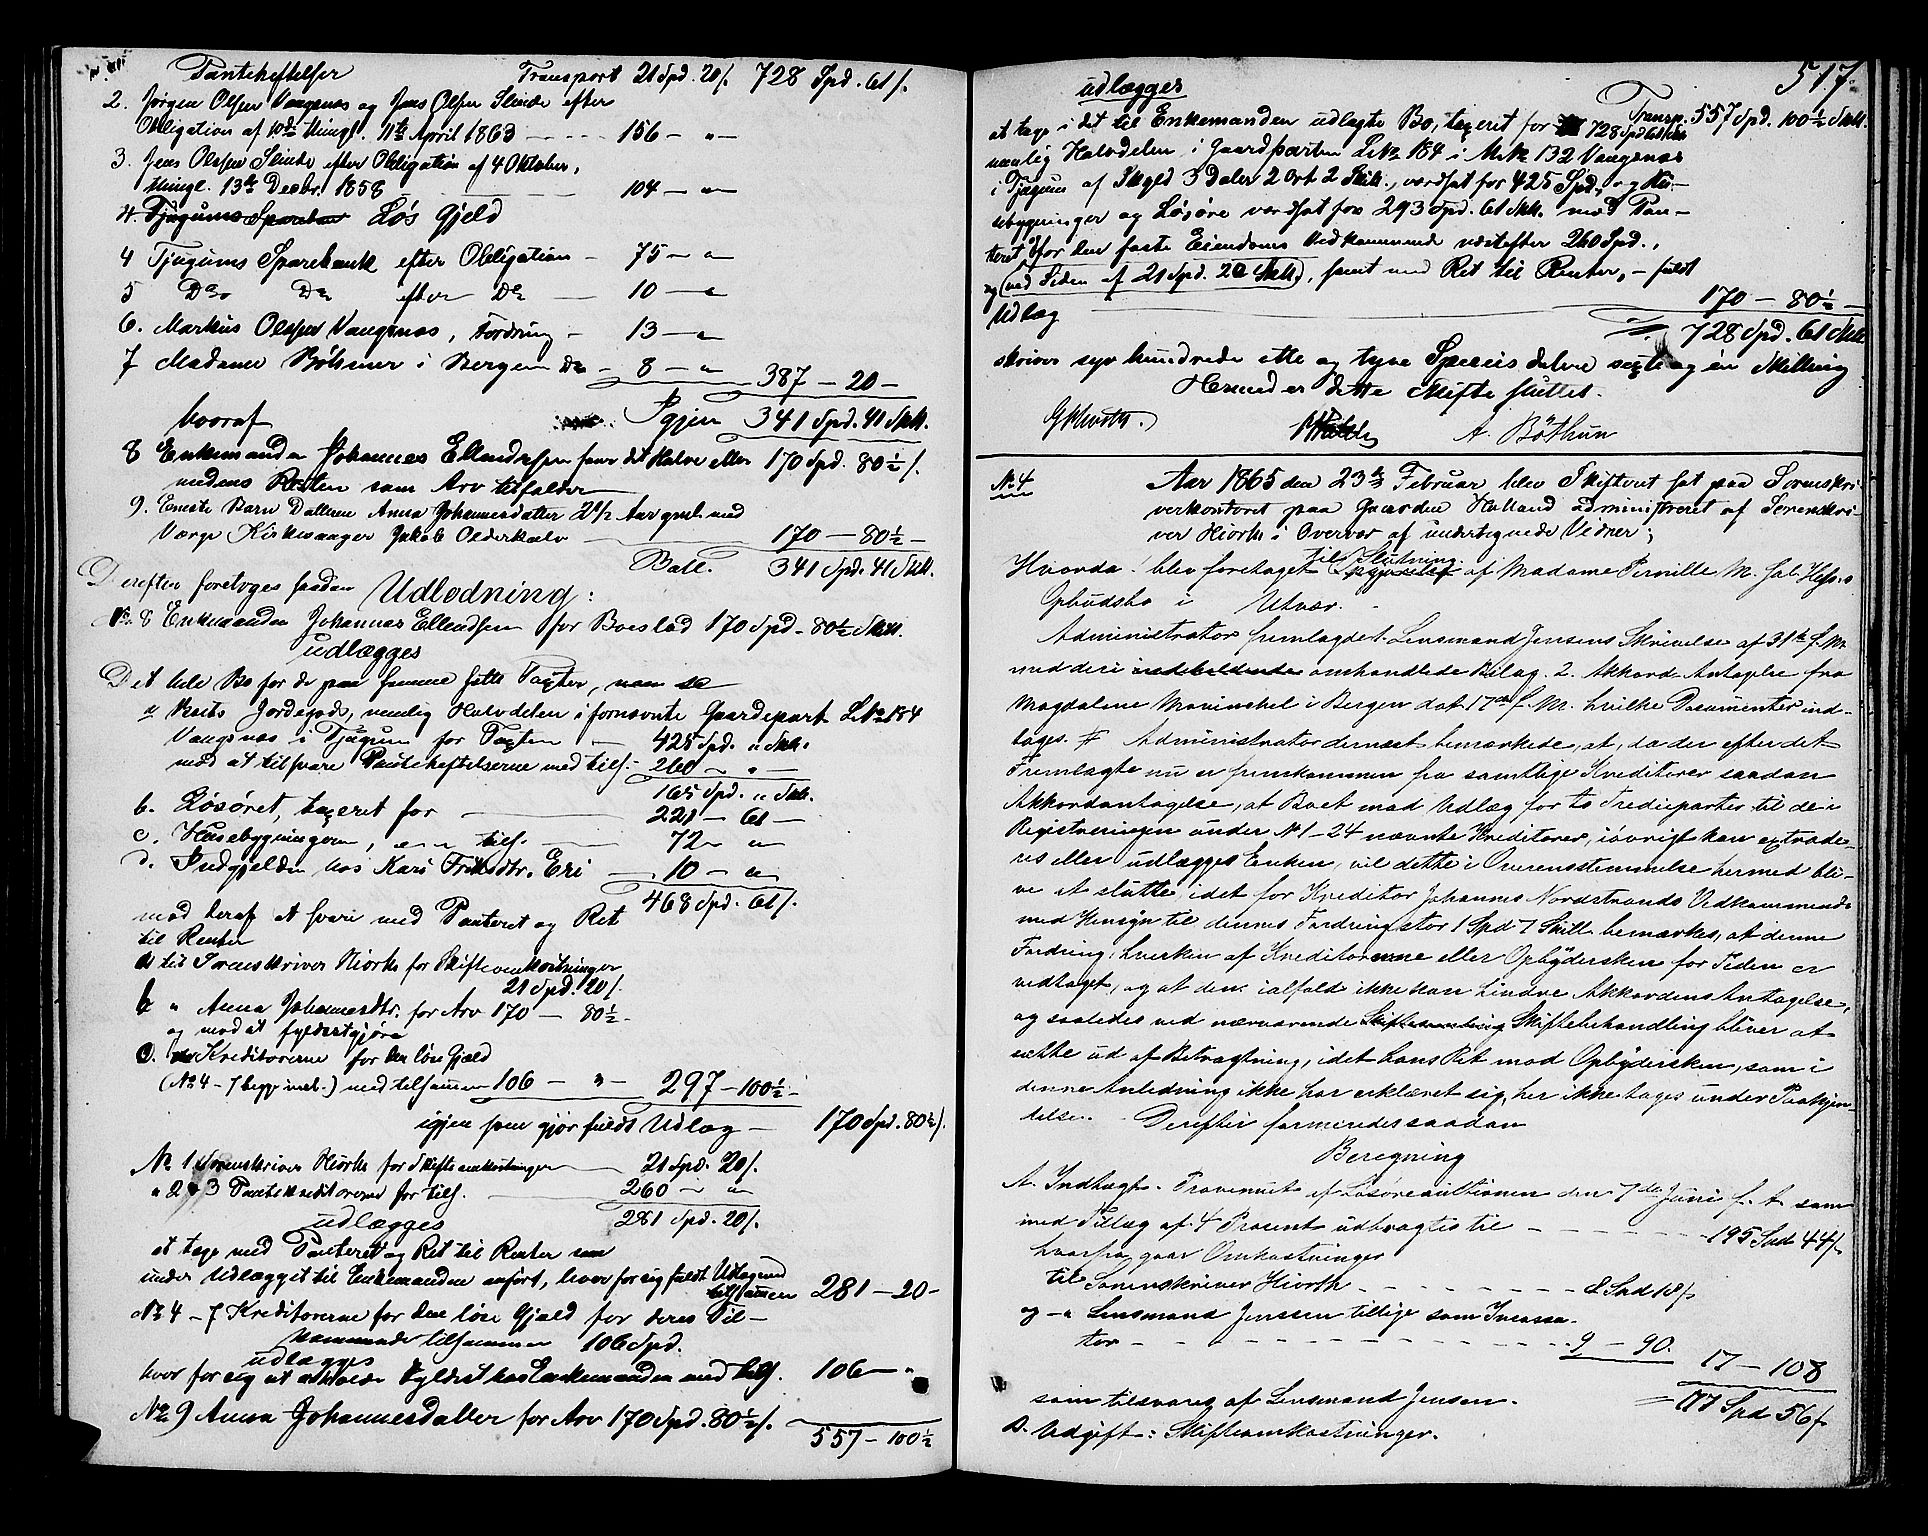 Panteheftelser Transport 21 Spd. 20 s. 728 Spd. 61 s.
2. Jørgen Olsen Vangsnæs og Jens Olsen Slinde efter
Obligation af 10de thingl. 11te April 1863 - - - - 156 - " -
3. Jens Olsen Slinde efter Obligation af 4 Oktober,
thingl. 13de Decbr. 1858 104 - " -
4. Tjugums Sparebank Løs Gjeld
4 Tjugums Sparebank efter Obligation - 75 - "
5 Do Do efter Do - 10 - "
6. Markus Olsen Vangsnæs, Fordring - 13 - "
7 Madame Böhmer i Bergen Do - 8 - " 387 - 20 -
hvoraf Igjen 341 Spd. 41 Skil.
8 Enkemanden Johannes Ellendsen faaer det Halve eller 170 Spd. 80½ s.
medens Resten som Arv tilfalder
9. Eneste Barn Datteren Anna Johannesdatter 2½ Aar gml. med
Værge Kirkesanger Jakob Olderkalv 170 - 80½ -
Ball. 341 Spd. 41 Skil.
Derefter foretoges saadan Udlodning:
No 8 Enkemanden Johannes Ellendsen for Boeslod 170 Spd. 80½ Skil.
udlægges
Det hele Bo for de paa samme satte Taxter, nam se
a Boets Jordegods, nemlig Halvdelen i fornævnte Gaardepart L No 184
Vangsnæs i Tjugum for Taxten - 425 Spd. " Skil.
mod at tilsvare Panteheftelserne med tils. - 260 - " -
165 Spd. " Skil.
b. Løsøret, taxeret for 221 - 61 -
c. Husebygningerne, " - " tils. 72 - "
d. Indgjelden hos Kari Eriksdtr. Eri 10 - "
468 Spd. 61 s.
mod heraf at svare med Panteret og Ret
til Renter
a til Sorenskriver Hiorth for Skifteomkostninger
21 Spd. 20 s.
b " Anna Johannesdtr. for Arv 170 - 80½ -
og mod at fyldestgjøre
c. Kreditorerne for den løse Gjæld
(No 4 - 7 begge incl.) med tilsammen 106 - " - 297 - 100½ -
igjen som gjør fuldt Udlæg - 170 Spd. 80½ s.
No 1 Sorenskriver Hiorth for Skifteomkostninger 21 Spd. 20 s.
" 2 & 3 Pantekreditorerne for tils. 260 - "
udlægges 281 Spd. 20 s.
at tage med Panteret og Ret til Renter som
under Udlægget til Enkemanden anført, hver for sig fuldt Udlæg med
tilsammen 281 - 20 -
No 4 - 7 Kreditorerne for den løse Gjæld for deres Til-
kommende tilsammen 106 Spd.
udlægges
hver for sig at erholde Fyldest hos Enkemanden med tils. 106 - "
No 9 Anna Johannesdatter for Arv 170 Spd. 80½ s.
557 - 100½
517.
udlægges Transp. 557 Spd. 100½ Skil.
at tage i det til Enkemanden udlagte Bo, taxeret for 728 Spd 61 Skil
nemlig Halvdelen i Gaardparten L No 184 i M No 132 Vangsnæs
i Tjugum af Skyld 3 Daler 2 Ort 2 Skill., værdsat for 425 Spd., og Hu-
sebygninger og Løsøre værdsat for 293 Spd. 61 Skil. mod Pan-
teret for den faste Eiendoms Vedkommende næstefter 260 Spd.,
og (ved Siden af 21 Spd. 20 Skil.), samt med Ret til Renter, - fuldt
Udlæg 170 - 80½ -
728 Spd. 61 Skil
skriver syv hundrede otte og tyve Speciesdalere sexti og én Skilling
Hermed er dette Skifte sluttet.
G Hiorth. A. Böthun
No 4 Aar 1865 den 23de Februar blev Skifteret sat paa Sorenskri-
verkontoret paa Gaarden Habland administreret af Sorenskri-
ver Hiorth i Overvær af undertegnede Vidner;
Hvorda blev foretaget til Slutning af Madame Perville M. fød Hess's
Opbudsbo i Utvær.
Administrator fremlagde 1. Lensmand Jensens Skrivelse af 31te f. M.
med deri indholdende omhandlede Bilag. 2. Akkord Antagelse fra
Magdalene Mowinckel i Bergen dat 17de f. M. hvilke Documenter ind-
tages. # Administrator dernæst bemærkede, at, da der efter det
Fremlagte nu er fremkommen fra samtlige Kreditorer saadan
Akkordantagelse, at Boet mod Udlæg for to Trediepartier til de i
Registreringen under No 1 - 24 nævnte Kreditorer, iøvrigt kan extrade-
res eller udlægges Enken, vil dette i Overensstemmelse hermed bli-
ve at slutte, idet for Kreditor Johannes Nordstrands Vedkommende
med Hensyn til dennes Fordring stor 1 Spd 7 Skill. bemærkes, at denne
Fordring hverken af Kreditorerne eller Opbydersken for Tiden er
vedtaget, og at den ialfald ikke kan hindre Akkordens Antagelse,
og saaledes ved nærværende Skiftesamling Skiftebehandling bliver at
sætte ud af Betragtning, idet hans Ret mod Opbydersken, som i
denne Anledning ikke har erklæret sig, her ikke tages under Paakjen-
delse. Derefter formeredes saadan
Beregning
A. Indtægt. Provenuet af Løsøreauktionen den 7de Juni f. A. som
med Tillæg af 4 Procent udbragtes til - - - - 195 Spd 44 s.
hvorfra gaar Omkostninger
til Sorenskriver Hiorth - - - - - 8 Spd 18 s.
og - " Lensmand Jenssen tillige som Incassa-
tor - - - - - - 9 - 90. 17 - 108
som tilsvares af Lensmand Jensen. = 177 Spd 56 s.
B. Udgift: Skifteomkostninger.